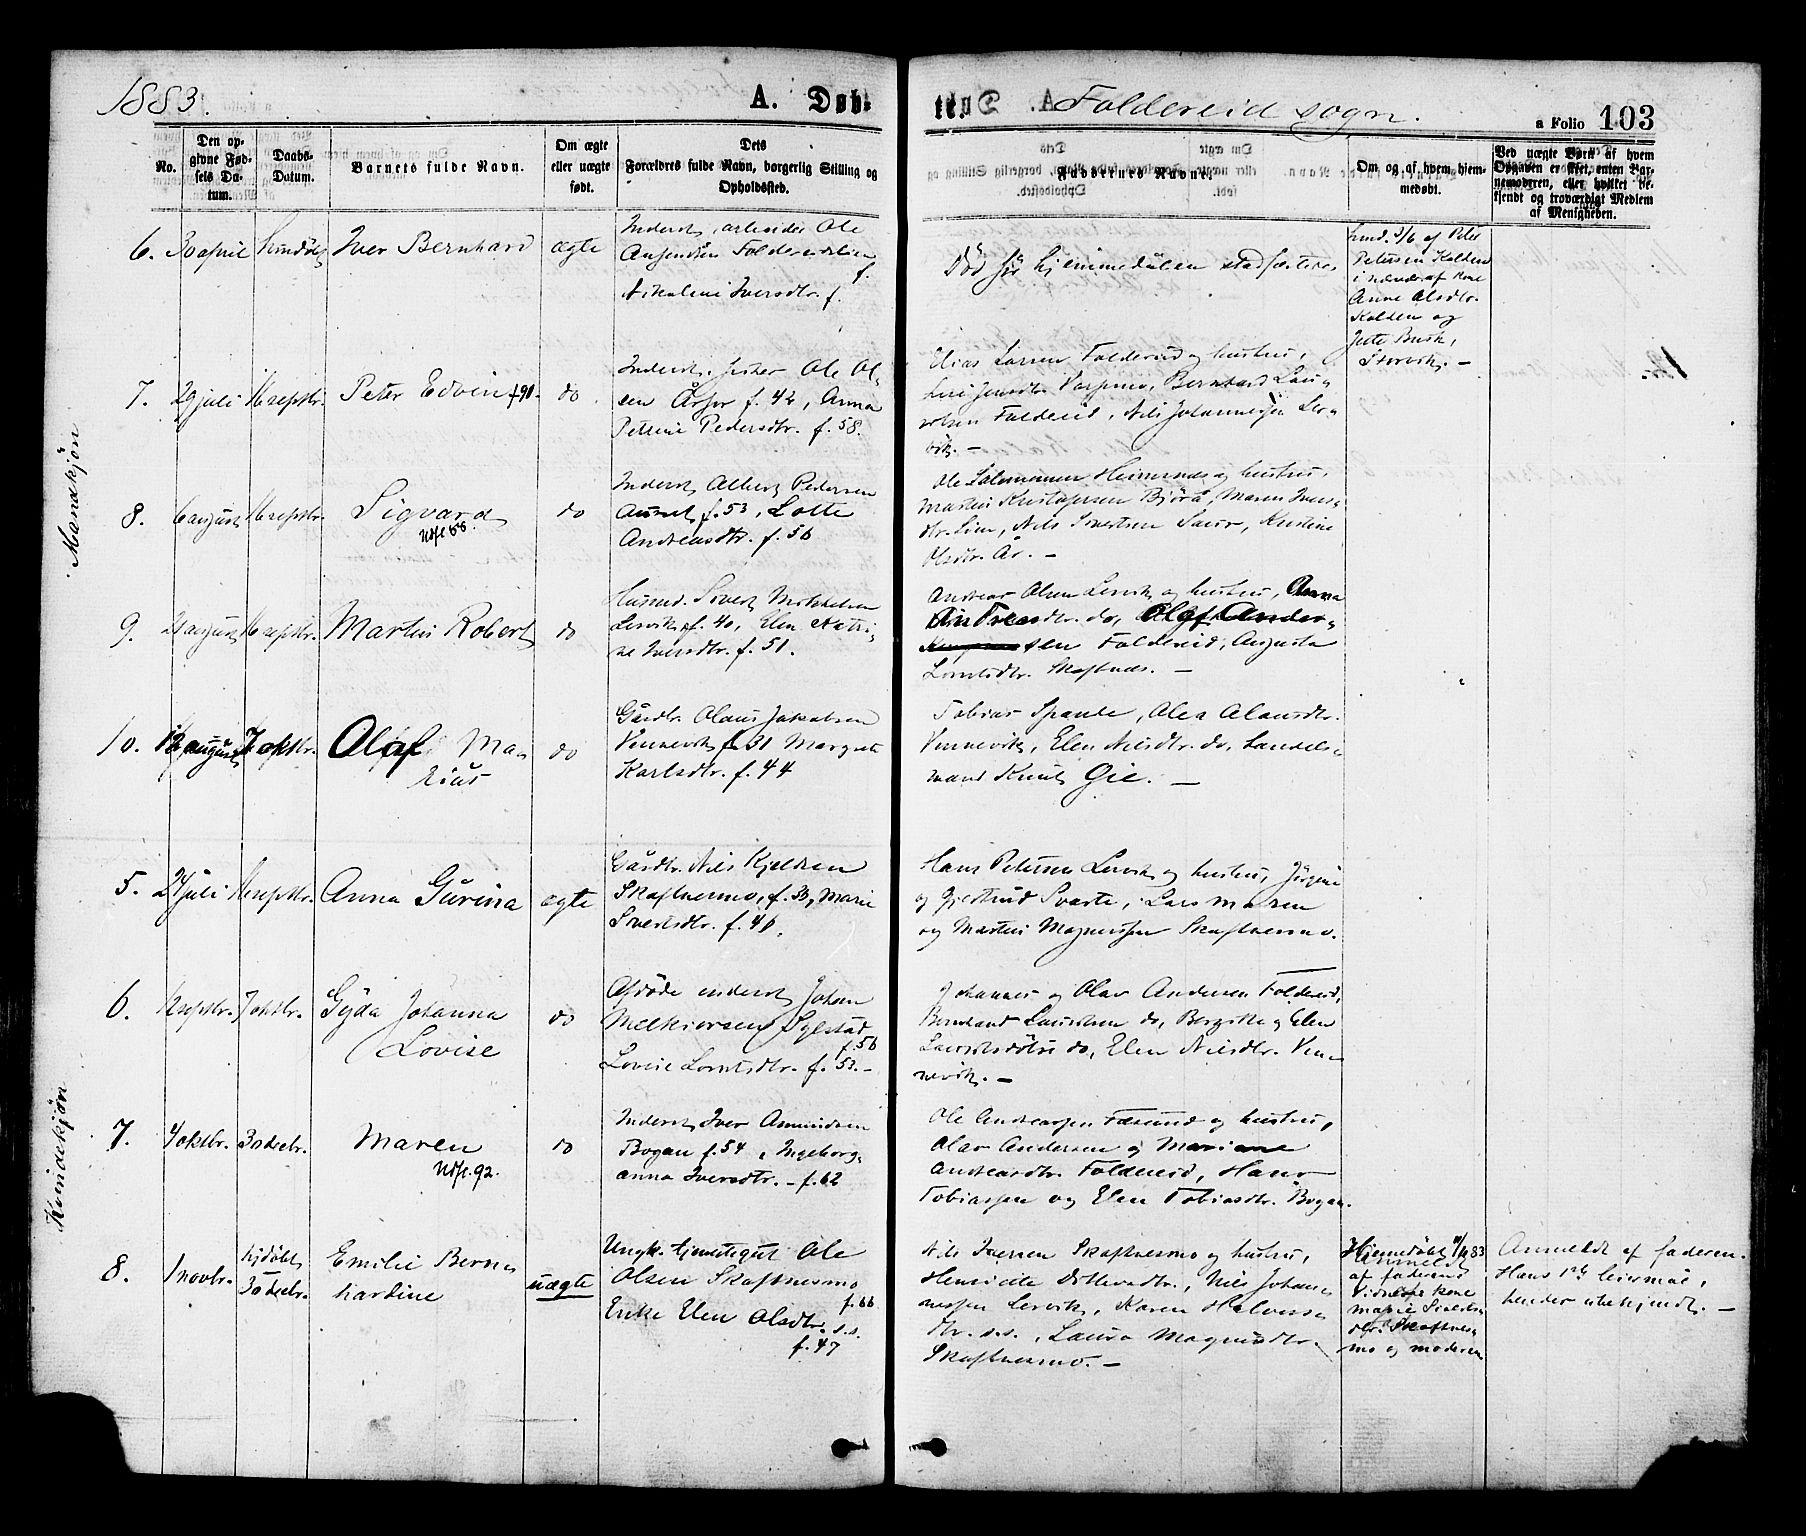 1883.
A. Døb-
Foldereid sogn.
a Folio 103
No.
Den op-
givne Fød-
sels Da-
tum.
Daabs-
Datum.
Barnets fulde Navn.
Om ægte
eller uægte
født.
Dets
Forældres fulde Navn, borgerlig Stilling og
Opholdssted.
Faddernes Navne.
Om og af hvem hjem-
medøbt.
Ved uægte Børn af hvem
Opgaven er skeet, enten Bar-
nemoderen, eller hvilket be-
kjendt og troværdigt Medlem
af Menigheden.
Mandkjøn
6. 30 april Iver Bernhard ægte
Inderst, arbeider Ole
Nikoline Iversdtr. f.
Død før hjemmedåben stadfæstedes
af Peter
Petersen Kolden
i nærvær af kone
Anne Olsdtr.
Kolden og
Storvik. —
7. 29 juli 16 septbr. Peter Edvin f 90. do
Inderst, fisker Ole Ol-
sen Årfor f. 42, Anna
Petrine Pedersdtr. f. 58.
Elias Larsen Foldereid og hustru,
Bernhard Lau-
ritsen Foldereid, Nils Johannesen Ler-
vik. —
8. 6 august 16 septbr. Sigvard do
Ndf. 88.
Inderst Albert Pedersen
Aunet f. 53, Lotte
Andreasdtr. f. 56
Ole Salomonsen Heimsnes og hustru,
Martin Kristofersen Bjørå, Maren Ivers-
dtr. Lien, Nils Sivertsen Saur, Kristine
Olsdtr. År. —
9. 21 august 16 septbr. Martin Robert do
Husmd. Sivert Mikkelsen
Lervik f. 40, Elen Katri-
ne Iversdtr. f. 51.
Andreas Olsen Lervik og hustru, Anna
Andreasdtr. do, Olaf Ander-
sen Foldereid, Augusta
Lorntsdtr. Skaftnes. —
10. 12 august 7 oktbr. Olaf Ma-
rius do
Gårdbr. Olaus Jakobsen
Vennevik f. 31 Margrete
Karlsdtr. f. 44
Tobias Spande, Olea Olausdtr.
Vennevik, Elen Nilsdtr. do, Landels-
mand Knut Gie. —
Kvindekjøn
5. 24 juli 16 septbr. Anna Gurina ægte
Gårdbr. Nils Kjeldsen
Skaftnesmo, f. 33, Marie
Sivertsdtr. f. 46.
Hans Petersen Lervik og hustru, Jørgine
og Gjertrud Svarte, Lars Larsen
og Martin Magnussen Skaftnesmo.
6. septbr. 7 oktbr. Gyda Johanna
Lovise do
Afdøde inderst Johan
Melkiorsen Sylstad
f. 56
Lovise Lorntsdtr. f. 53. —
Johannes og Olav Andersen Foldereid,
Bernhard Lauritsen do, Bergitte og Elen
Lauritsdøtre do, Elen Nilsdtr. Ven-
nevik. —
7. 4 oktbr. 3 decbr. Maren do
Ndf. 92.
Inderst Iver Amundsen
Bogan f. 54, Ingeborg-
anna Iversdtr. — f. 62
Ole Andreassen Fæsund og hustru,
Olav Andersen og Mariane
Andreasdtr. Foldereid, Hans
Tobiassen og Elen Tobiasdtr. Bogan.
8. 1 novbr. hjdøbt
3 decbr. Emilie Bern-
hardine uægte
Ungk. tjenestegut Ole
Olsen Skaftnesmo
f. 66
Enke Elen Olsdtr. s.s.
f. 47
Nils Iversen Skaftnesmo og hustru,
Henriette Ditlevsdtr., Nils Johan-
nessen Lervik, Karen Halvors-
dtr. s.s., Laura Magnusdtr.
Skaftnesmo. —
Hjemmedøbt 83
Anmeldt
af faderen
kone
Marie Siverts-
dtr. Skaftnes-
mo og moderen
Anmeldt af faderen.
Hans 1ste leiermål,
hendes ubekjendt. —